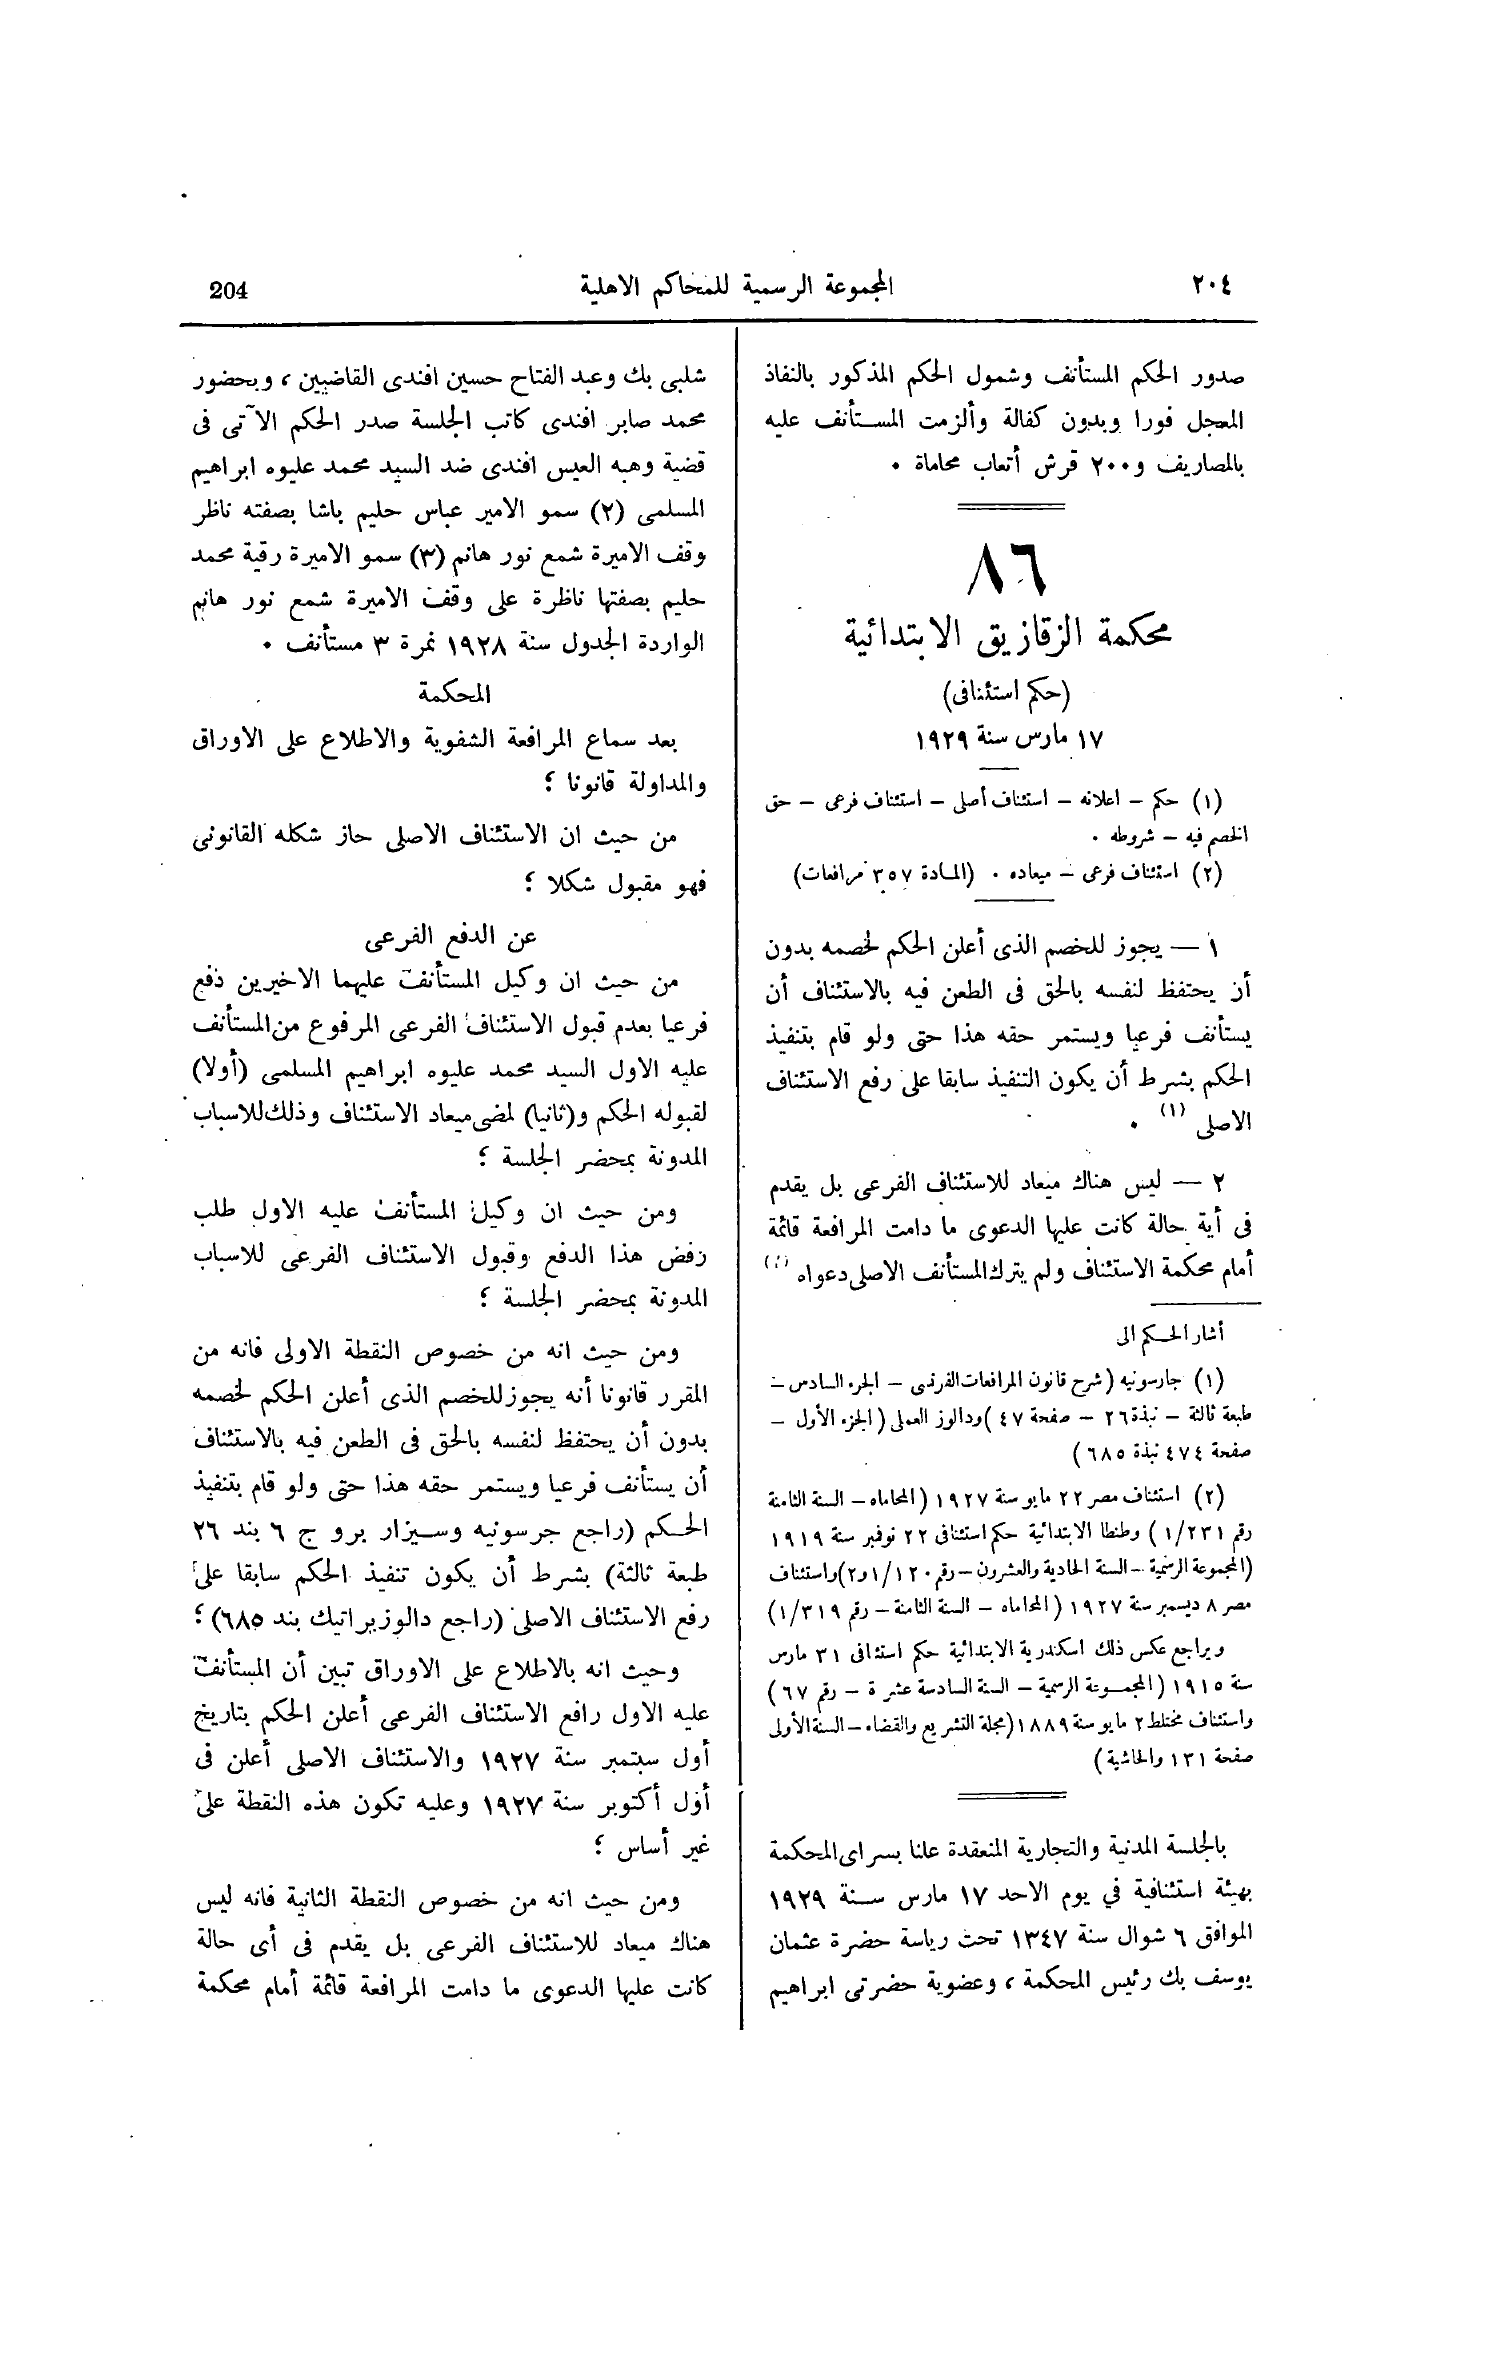 ٢٠٤
المجموعة الرسمية للمحاكم الاهلية
204
صدور الحكم المستأنف وشمول الحكم المذكور بالنفاذ
المعجل فورا وبدون كفالة وألزمت المستأنف عليه
بالمصاريف و٢٠٠ قرش أتعاب محاماة .
٨٦
محكمة الزقازيق الابتدائية
(حكم استئنافى)
١٧ مارس سنة ١٩٢٩
(١) حكم – اعلانه – استئناف أصلى – استئناف فرعى – حق
الخصم فيه – شروطه .
(٢) استئناف فرعى – ميعاده . (المادة ٣٥٧ مرافعات)
١ — يجوز للخصم الذى أعلن الحكم لخصمه بدون
أن يحتفظ لنفسه بالحق فى الطعن فيه بالاستئناف أن
يستأنف فرعيا ويستمر حقه هذا حتى ولو قام بتنفيذ
الحكم بشرط أن يكون التنفيذ سابقا على رفع الاستئناف
الاصلى (١) .
٢ — ليس هناك ميعاد للاستئناف الفرعى بل يقدم
فى أية حالة كانت عليها الدعوى ما دامت المرافعة قائمة
أمام محكمة الاستئناف ولم يترك المستأنف الاصلى دعواه
أشار الحكم الى
(١) جارسونيه (شرح قانون المرافعات الفرنسى – الجزء السادس –
طبعة ثالثة – نبذة ٢٦ – صفحة ٤٧) ودالوز العملى (الجزء الأول –
صفحة ٤٧٤ نبذة ٦٨٥)
(٢) استئناف مصر ٢٢ مايو سنة ١٩٢٧ (المحاماه – السنة الثامنة
رقم ١/٢٣١) وطنطا الابتدائية حكم استئنافى ٢٢ نوفبر سنة ١٩١٩
(المجموعة الرسمية – السنة الحادية والعشرون – رقم ١/١٢٠و٢) واستئناف
مصر ٨ ديسمبر سنة ١٩٢٧ (المحاماه – السنة الثامنة – رقم ١/٣١٩)
ويراجع عكس ذلك اسكندرية الابتدائية حكم استئنافى ٣١ مارس
سنة ١٩١٥ (المجموعة الرسمية – السنة السادسة عشرة – رقم ٦٧)
واستئناف مختلط ٢ مايو سنة ١٨٨٩ (مجلة التشريع والقضاء – السنة الأولى
صفحة ١٣١ والحاشية)
بالجلسة المدنية والتجارية المنعقدة علنا بسراى المحكمة
بهيئة استئنافية في يوم الاحد ١٧ مارس سنة ١٩٢٩
الموافق ٦ شوال سنة ١٣٤٧ تحت رياسة حضرة عثمان
يوسف بك رئيس المحكمة ، وعضوية حضرتى ابراهيم
شلبى بك وعبد الفتاح حسين افندى القاضيين ، وبحضور
محمد صابر افندى كاتب الجلسة صدر الحكم الآتى فى
قضية وهبه العيس افندى ضد السيد محمد عليوه ابراهيم
المسلمى (٢) سمو الامير عباس حليم باشا بصفته ناظر
وقف الاميرة شمع نور هانم (٣) سمو الاميرة رقية محمد
حليم بصفتها ناظرة على وقف الاميرة شمع نور هانم
الواردة الجدول سنة ١٩٢٨ نمرة ٣ مستأنف .
المحكمة
بعد سماع المرافعة الشفوية والاطلاع على الاوراق
والمداولة قانونا ؛
من حيث ان الاستئناف الاصلى حاز شكله القانونى
فهو مقبول شكلا ؛
عن الدفع الفرعى
من حيث ان وكيل المستأنف عليهما الاخيرين دفع
فرعيا بعدم قبول الاستئناف الفرعى المرفوع من المستأنف
عليه الاول السيد محمد عليوه ابراهيم المسلمى (أولا)
لقبوله الحكم و(ثانيا) لمضى ميعاد الاستئناف وذلك للاسباب
المدونة بمحضر الجلسة ؛
ومن حيث ان وكيل المستأنف عليه الاول طلب
رفض هذا الدفع وقبول الاستئناف الفرعى للاسباب
المدونة بمحضر الجلسة ؛
ومن حيث انه من خصوص النقطة الاولى فانه من
المقرر قانونا أنه يجوز للخصم الذى أعلن الحكم لخصمه
بدون أن يحتفظ لنفسه بالحق فى الطعن فيه بالاستئناف
أن يستأنف فرعيا ويستمر حقه هذا حتى ولو قام بتنفيذ
الحكم (راجع جرسونيه وسيزار برو ج ٦ بند ٢٦
طبعة ثالثة) بشرط أن يكون تنفيذ الحكم سابقا على
رفع الاستئناف الاصلى (راجع دالوز براتيك بند ٦٨٥) ؛
وحيث انه بالاطلاع على الاوراق تبين أن المستأنف
عليه الاول رافع الاستئناف الفرعى أعلن الحكم بتاريخ
أول سبتمبر سنة ١٩٢٧ والاستئناف الاصلى أعلن فى
أول أكتوبر سنة ١٩٢٧ وعليه تكون هذه النقطة على
غير أساس ؛
ومن حيث انه من خصوص النقطة الثانية فانه ليس
هناك ميعاد للاستئناف الفرعى بل يقدم فى أى حالة
كانت عليها الدعوى ما دامت المرافعة قائمة أمام محكمة